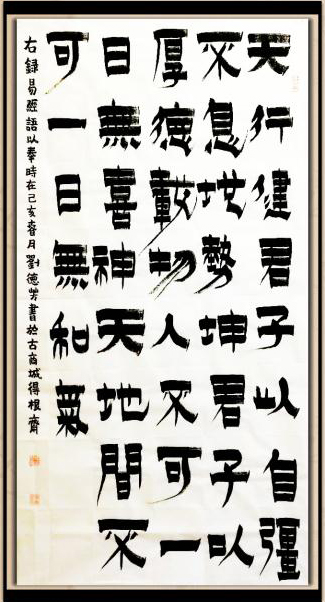 天行健君子以自彊
不息地勢坤君子以
厚德載物人不可一
日無喜神天地間不
可一日無和氣
右錄易經語以奉時在己亥春月劉德芳書於古商城得根齋